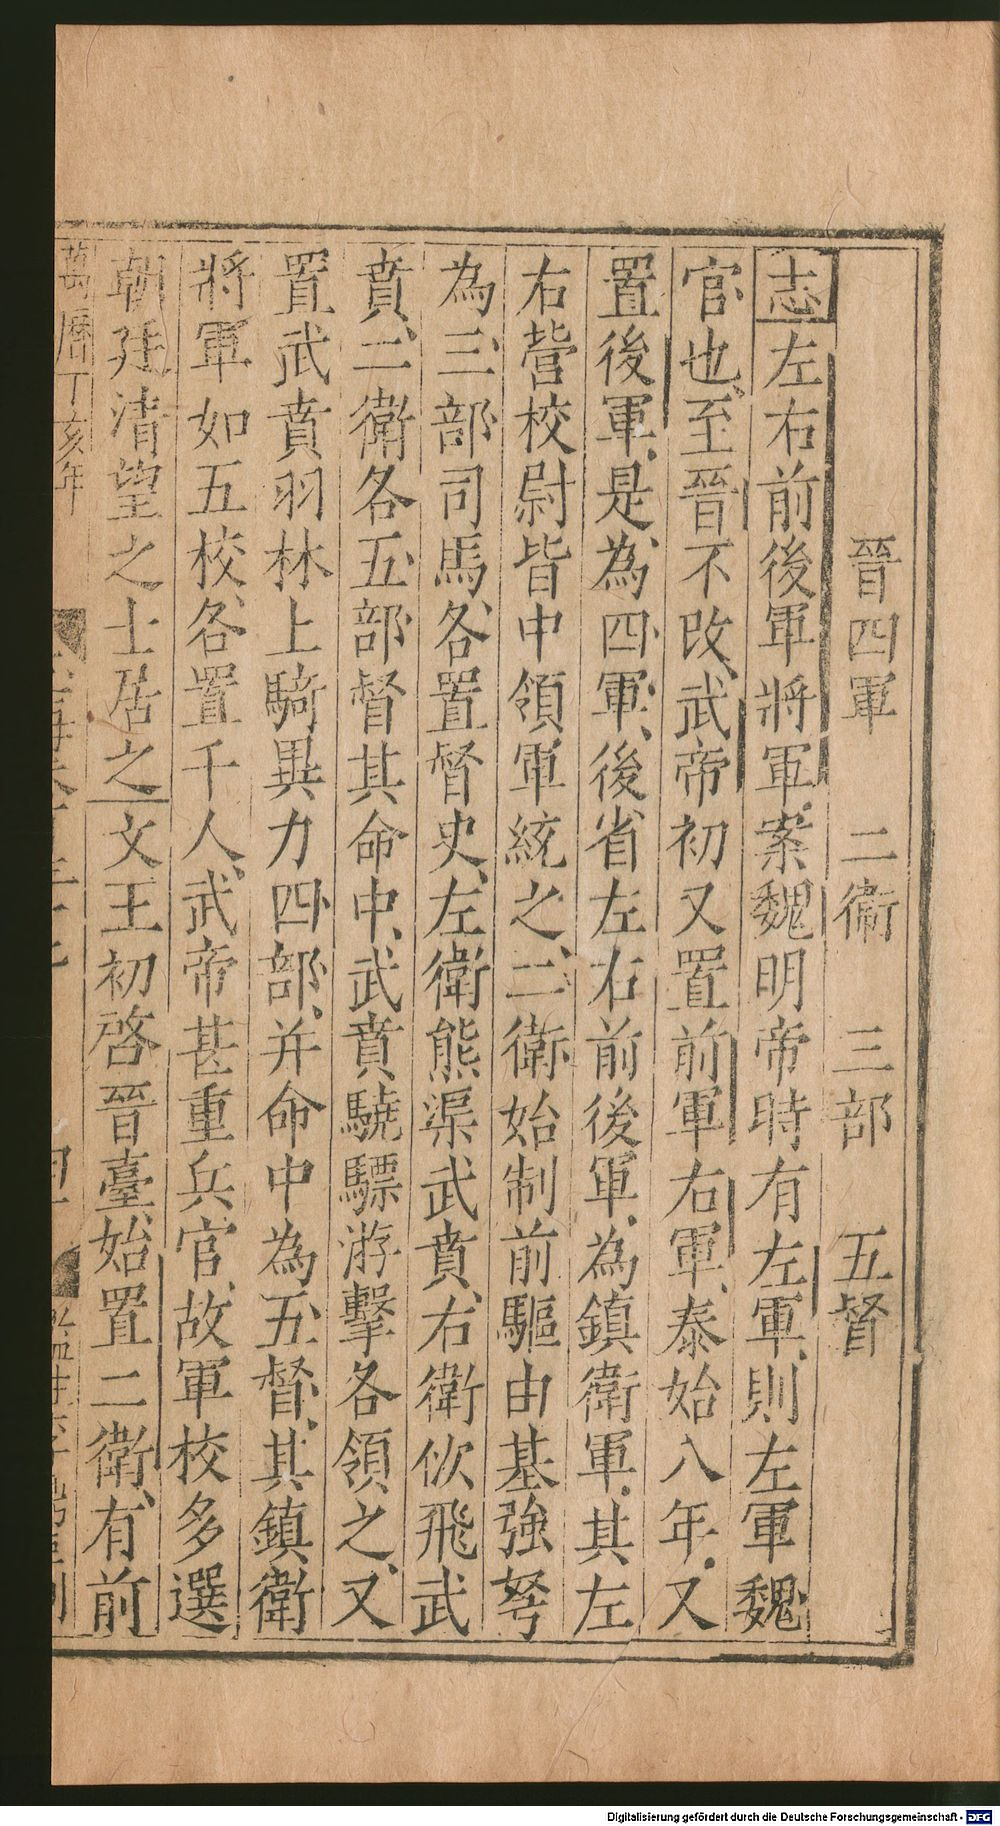 晉四軍 二衞 三部 五督
志左右前後軍將軍案魏明帝時有左軍則左軍魏
官也至晉不改武帝初又置前軍右軍泰始八年又
置後軍是為四軍後省左右前後軍為鎮衛軍其左
右營校尉皆中領軍統之二衛始制前驅由基強弩
為三部司馬各置督史左衛熊渠武賁右衛佽飛武
賁二衛各五部督其命中武賁驍騎游擊各領之又
置武賁羽林上騎異力四部并命中為五督其鎮衛
將軍如五校各置千人武帝甚重兵官故軍校多選
朝廷清望之士居之文王初啓晉臺始置二衛有前
萬曆丁亥年
Digitalisierung gefördert durch die Deutsche Forschungsgemeinschaft - DFG